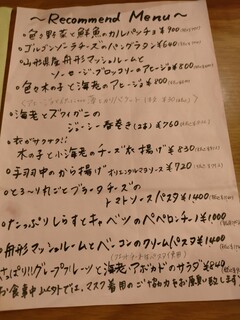 ～Recommend Menu～
・色々野菜と鮮魚のカルパッチョ ¥900
・ゴルゴンゾーラチーズのペンネグラタン ¥600
・山形県産舟形マッシュルームと
ソーセージ・ブロッコリーのアヒージョ ¥800
・色々木の子と海老のアヒージョ ¥800
・海老とズワイガニの
ジューシー春巻き(2本) ¥760
・衣がサクサク!!
木の子と小海老のチーズ衣揚げ ¥830
・手羽中のから揚げ オリエンタルマソース ¥720
・とろ〜り丸ごとブラータチーズの
トマトソースパスタ ¥1400
・たっぷりしらすとキャベツのペペロンチーノ ¥1000
・舟形マッシュルームとベーコンのクリームパスタ ¥1400
さっぱり!!グレープフルーツと海老・アボカドのサラダ ¥840
お食事中以外では、マスク着用のご協力をお願い致します